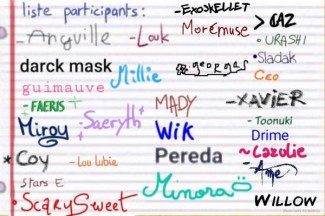 liste participants:
- EXOSKELLET
> CAZ
- Anguille
- Louk
Moremuse
• URASHI
• Sladak
darck mask
Millie
georges
Ceo
guimauve
- FAERIS +
MADY
- XAVIER
- Saeryth
- Toonuki
Miroy
Wik
Drime
* Coy
- Lou lubie
Pereda
~ Carolie
- Ame
stars E
Minora
• ScarySweet
WILLOW